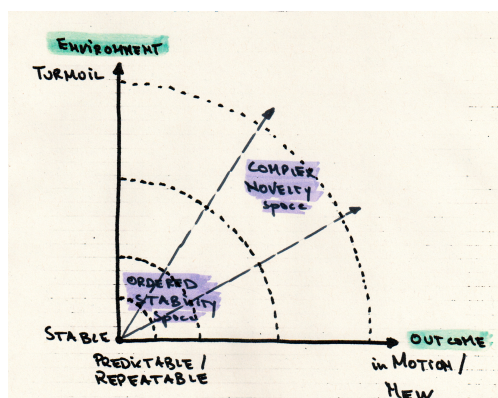 ENVIRONMENT
TURMOIL
COMPLEX
NOVELTY
space
ORDERED
STABILITY
space
STABLE
PREDICTABLE /
REPEATABLE
OUTCOME
in MOTION /
NEW